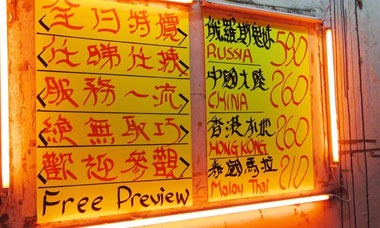 全日特價
任睇任揀
服務一流
絕無取巧
歡迎參觀
Free Preview
俄羅斯鬼妹
RUSSIA 580
中國大陸
CHINA 260
香港本地
HONG KONG 260
泰國馬拉
Malay Thai 210